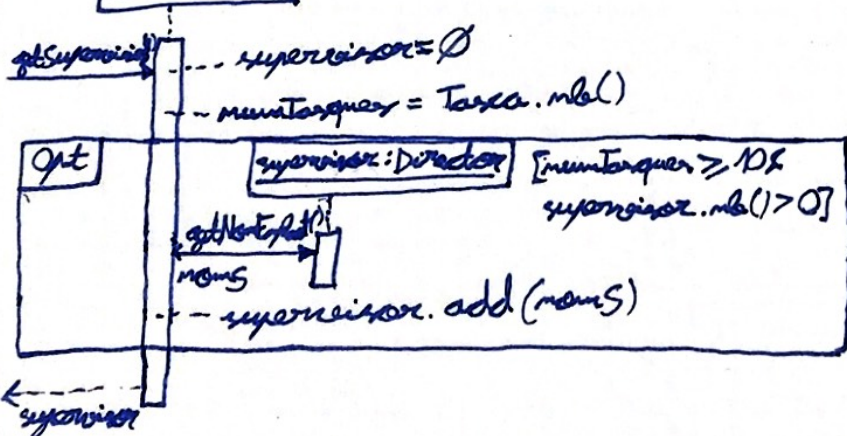 getSupervisió()
supervisor=Ø
numTasques = Tasca.mb()
Opt
supervisor:Director
[numTasques ≥ 10 &
supervisor.mb()>0]
getNomEmpleat()
nomS
supervisor.add(nomS)
supervisor